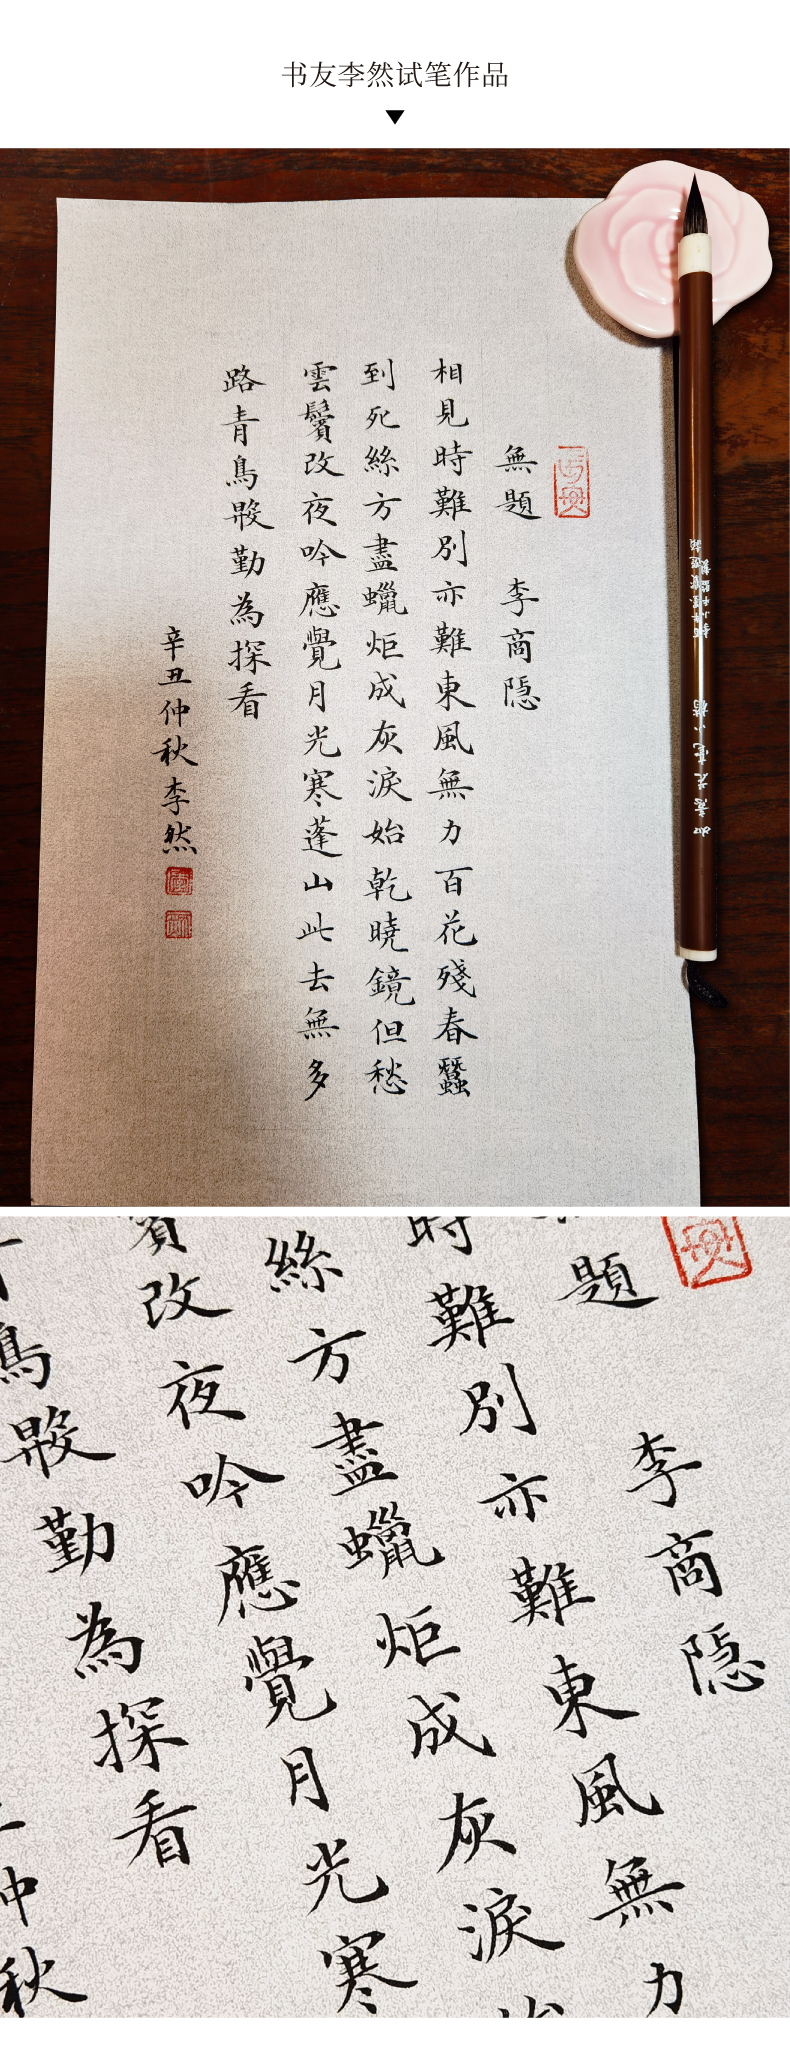 书友李然试笔作品
無題 李商隱
相見時難別亦難東風無力百花殘春蠶
到死絲方盡蠟炬成灰淚始乾曉鏡但愁
雲鬢改夜吟應覺月光寒蓬山此去無多
路青鳥殷勤為探看
辛丑仲秋李然
題
李商隱
時難別亦難東風無力
絲方盡蠟炬成灰淚
改夜吟應覺月光寒
鳥殷勤為探看
仲秋